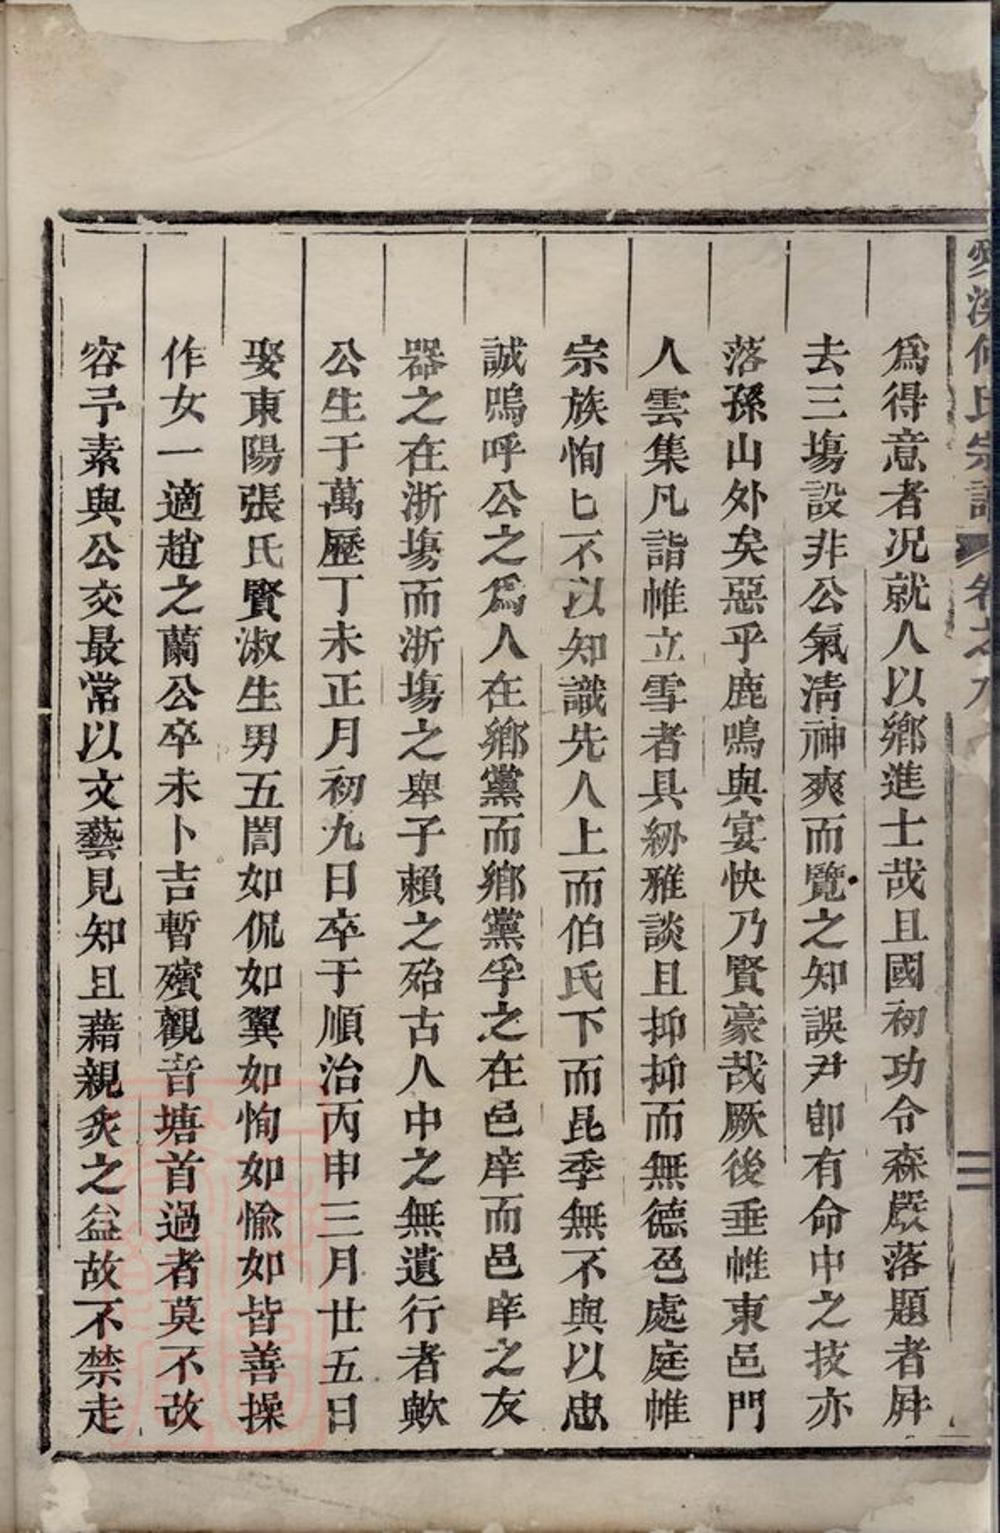 何氏宗譜 卷之九
爲得意者况就人以鄉進士哉且國初功令森嚴落題者屛
去三塲設非公氣清神爽而覽之知誤尹卽有命中之技亦
落孫山外矣惡乎鹿鳴與宴快乃賢豪哉厥後垂帷東邑門
人雲集凡詣帷立雪者具紛雅談且抑抑而無德色處庭帷
宗族恂匕不以知識先人上而伯氏下而昆季無不與以忠
誠嗚呼公之爲人在鄉黨而鄉黨孚之在邑庠而邑庠之友
器之在浙塲而浙塲之舉子賴之殆古人中之無遺行者歟
公生于萬歷丁未正月初九日卒于順治丙申三月廿五日
娶東陽張氏賢淑生男五誾如侃如翼如恂如愉如皆善操
作女一適趙之蘭公卒未卜吉暫殯觀音塘首過者莫不改
容予素與公交最常以文藝見知且藉親炙之益故不禁走